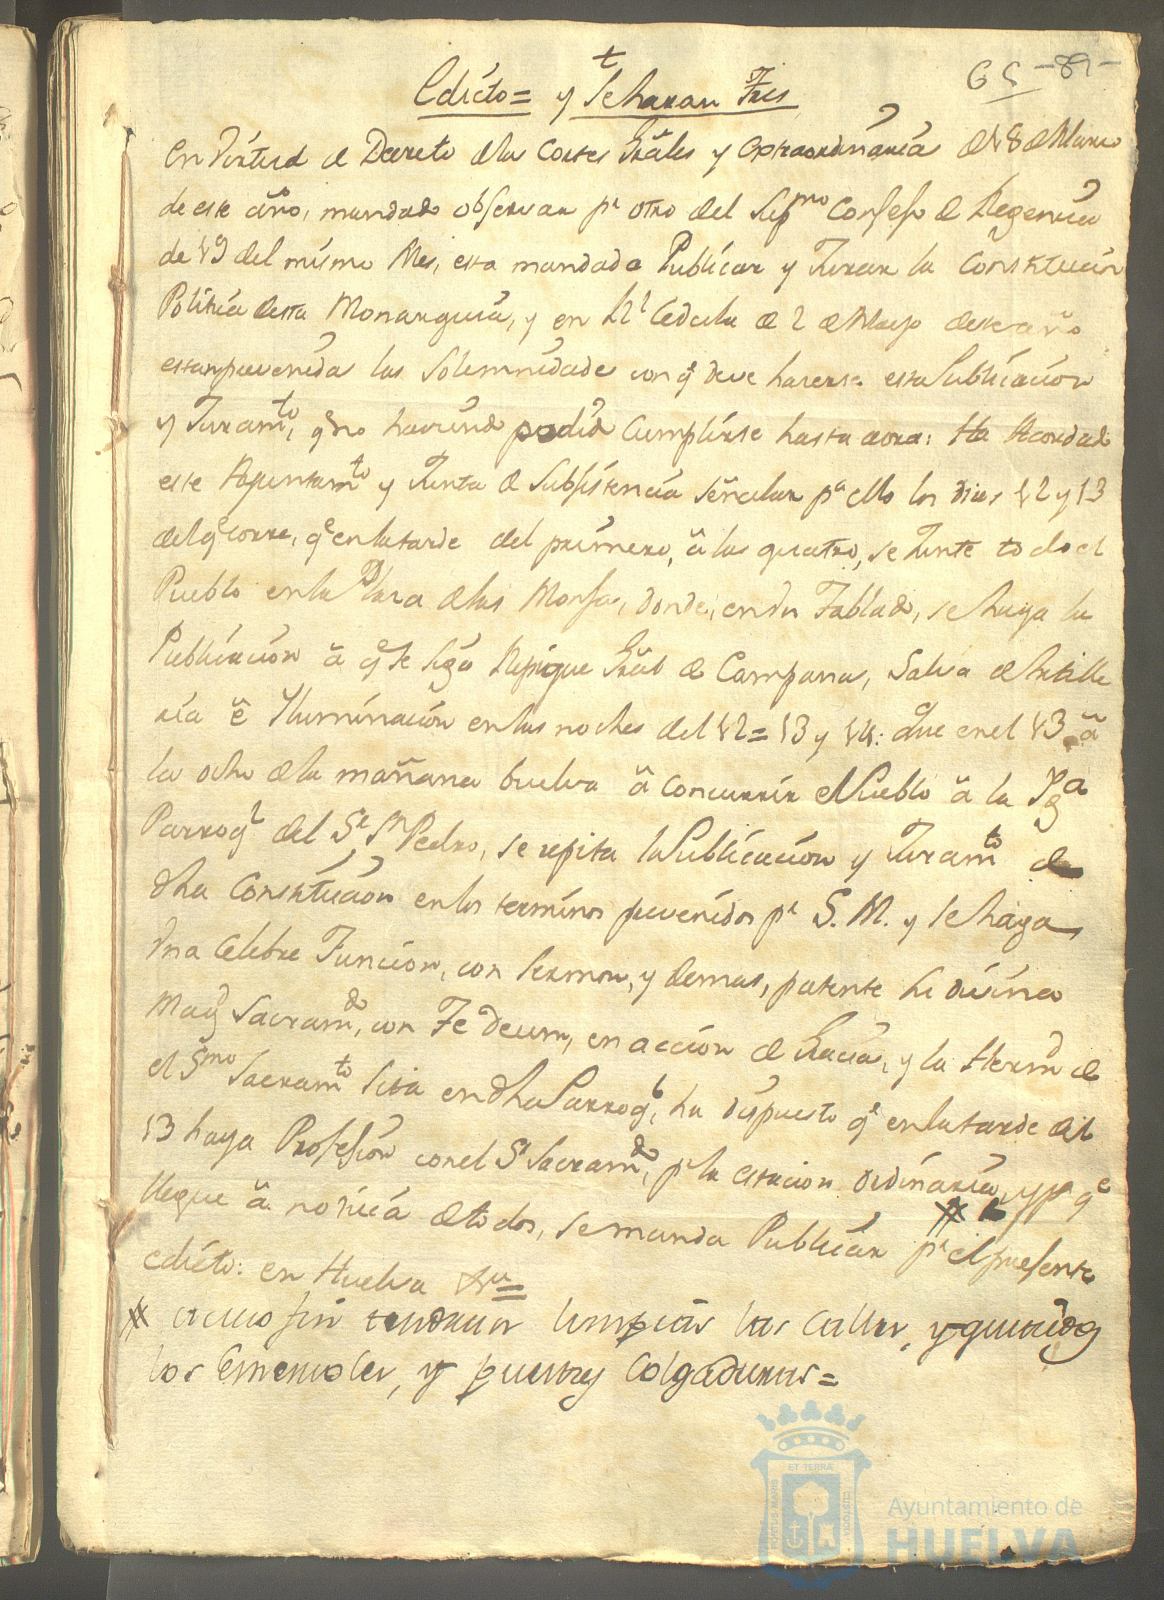 65 -89-
t
Edicto= y Se haran Tres
En Virtud de Decreto de las Cortes Grales y Extraordinaria de 18 de Marzo
de este año, mandado observar pr otro del Supmo Consejo de Regencia
de 19 del mismo Mes, esta mandada Publicar y Jurar la Constitucion
Politica desta Monarquia, y en Rl Cedula de 2 de Mayo deste año
estan prevenida las Solemnidade con qe deve hacerse esta Publicacion
y Juramto, qe no haviend podid Cumplirse hasta aora: Ha Acordad
este Ayuntamto y Junta de Subsistencia señalar pa ello los dias 12 y 13
del qe corre, qe en la tarde del primero, â las quatro, se Junte todo el
Pueblo en la Plaza de las Monjas, donde, en un Tablado, se haga la
Publicacion â qe se siga Repique Gral de Campana, Salva de Artille
ria ê Yluminacion en las noches del 12= 13 y 14: Que en el 13 â
la ocho de la mañana buelva â concurrir el Pueblo â la Yga
Parroql del Sr Sn Pedro, se repita la Publicacion y Juramto de
dha Constitucion en los terminos prevenidos pr S. M. y se haga
Una Celebre Funcion, con Sermon, y demas, patente Su divina
Magd Sacramdo, con Te Deum, en accion de Gracia, y la Hermd de
el Smo Sacramto Sita en dha Parroql, ha dispuesto qe en la tarde del
13 haya Prosesion con el Sr Sacramdo, pr la estacion ordinaria, y pa qe
llegue â noticia de todos, se manda Publicar pr el presente
edicto: en Huelva &a=
# a cuyo fin tendran limpias las Calles, y quitados
los Escombros, y puestas Colgaduras=
PORTUS MARIS ET TERRAE CUSTODIA
Ayuntamiento de
HUELVA